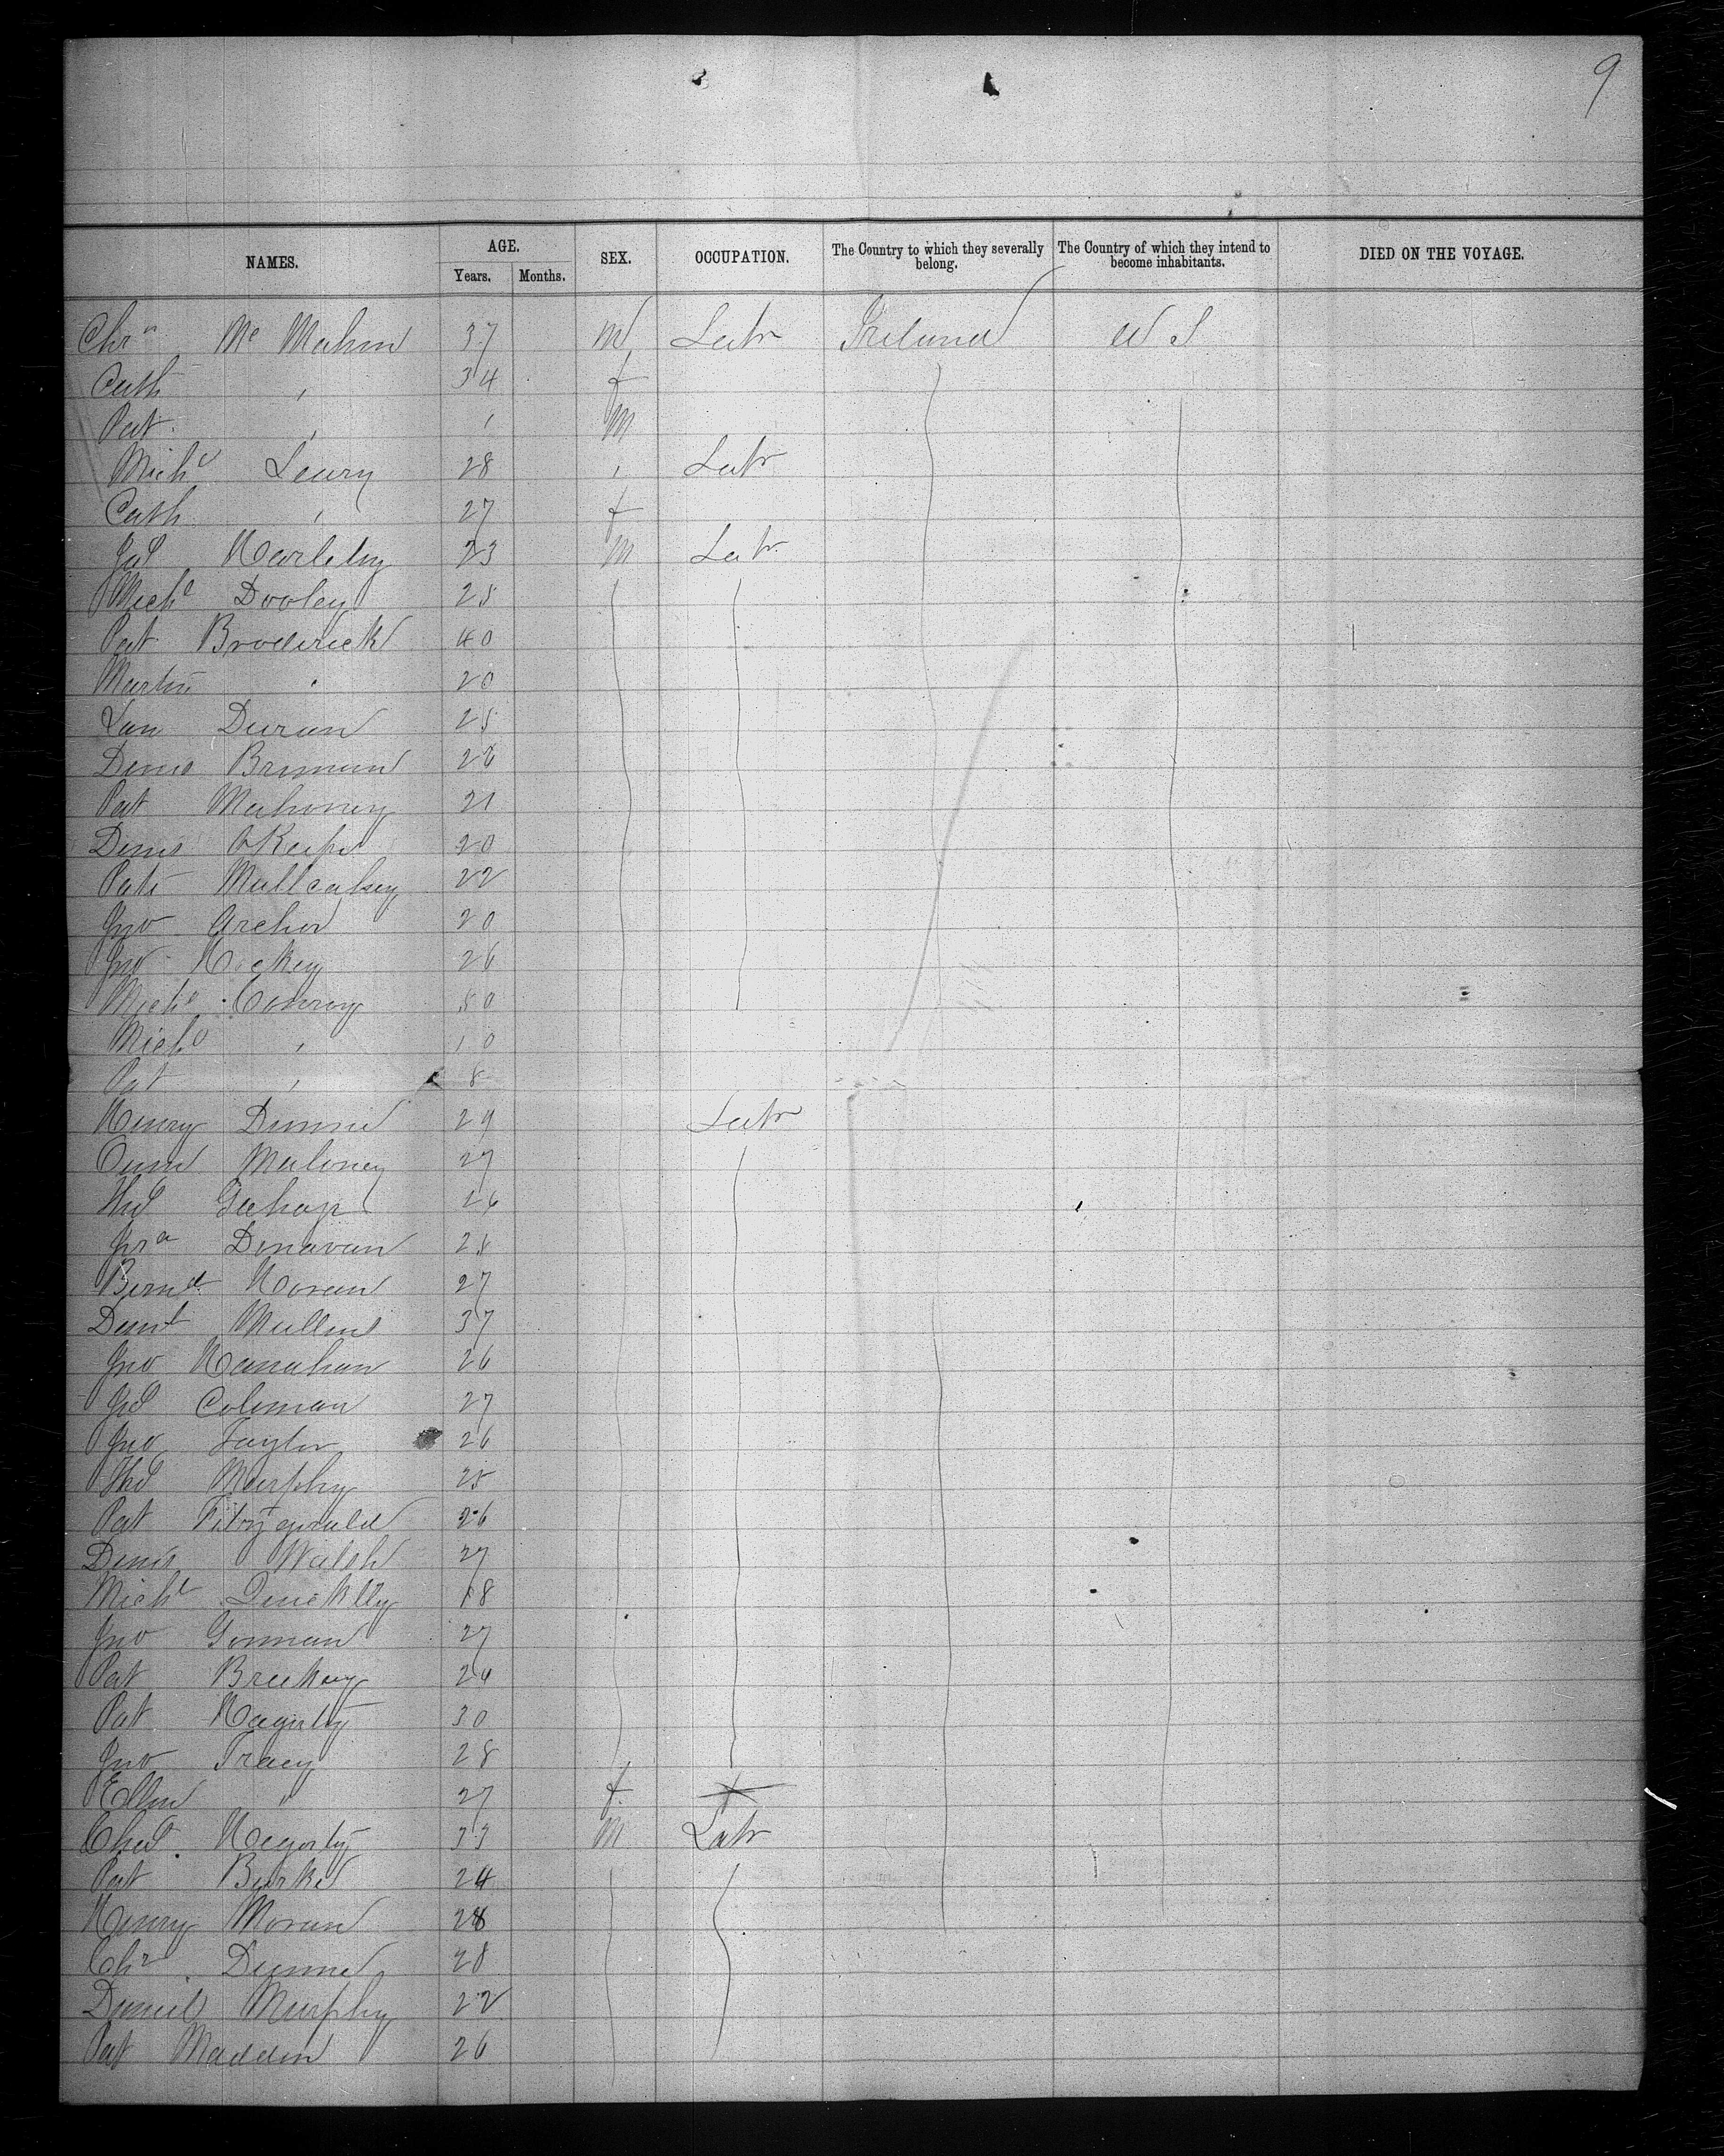 9
NAMES. AGE. SEX. OCCUPATION. The Country to which they severally belong. The Country of which they intend to become inhabitants. DIED ON THE VOYAGE.
Years. Months.
Chrⁿ Mc Mahon 37 M Labr Ireland U S
Cath , 34 f
Pat , , M
Michl Leary 28 , Labr
Cath , 27 f
Jas 23 M Labr
Michl Dooley 25
Pat Broderick 40
Martin , 20
Lau Duran 25
Denis Brennan 26
Pat Mahoney 21
Denis OKeefe 20
Patk Mullcahey 22
Jno Archer 20
Jno Hickey 26
Michl Conroy 50
Michl , 10
Pat , 8
Henry Dunne 29 Labr
Owen Maloney 27
Thos 26
Jno Donavan 25
Bernd Horan 27
Danl Mullins 37
Jno Hanahan 26
Jas Coleman 27
Jno Taylor 26
Thos Murphy 25
Pat Fitzgerald 26
Denis Walsh 27
Michl 18
Jno Gorman 27
Pat 24
Pat Hagerty 30
Jno Tracy 28
Ellen " 27 f
Chas Hegerty 33 M Labr
Pat Burke 24
Henry Moran 28
Chr Dunne 28
Daniel Murphy 22
Pat Madden 26